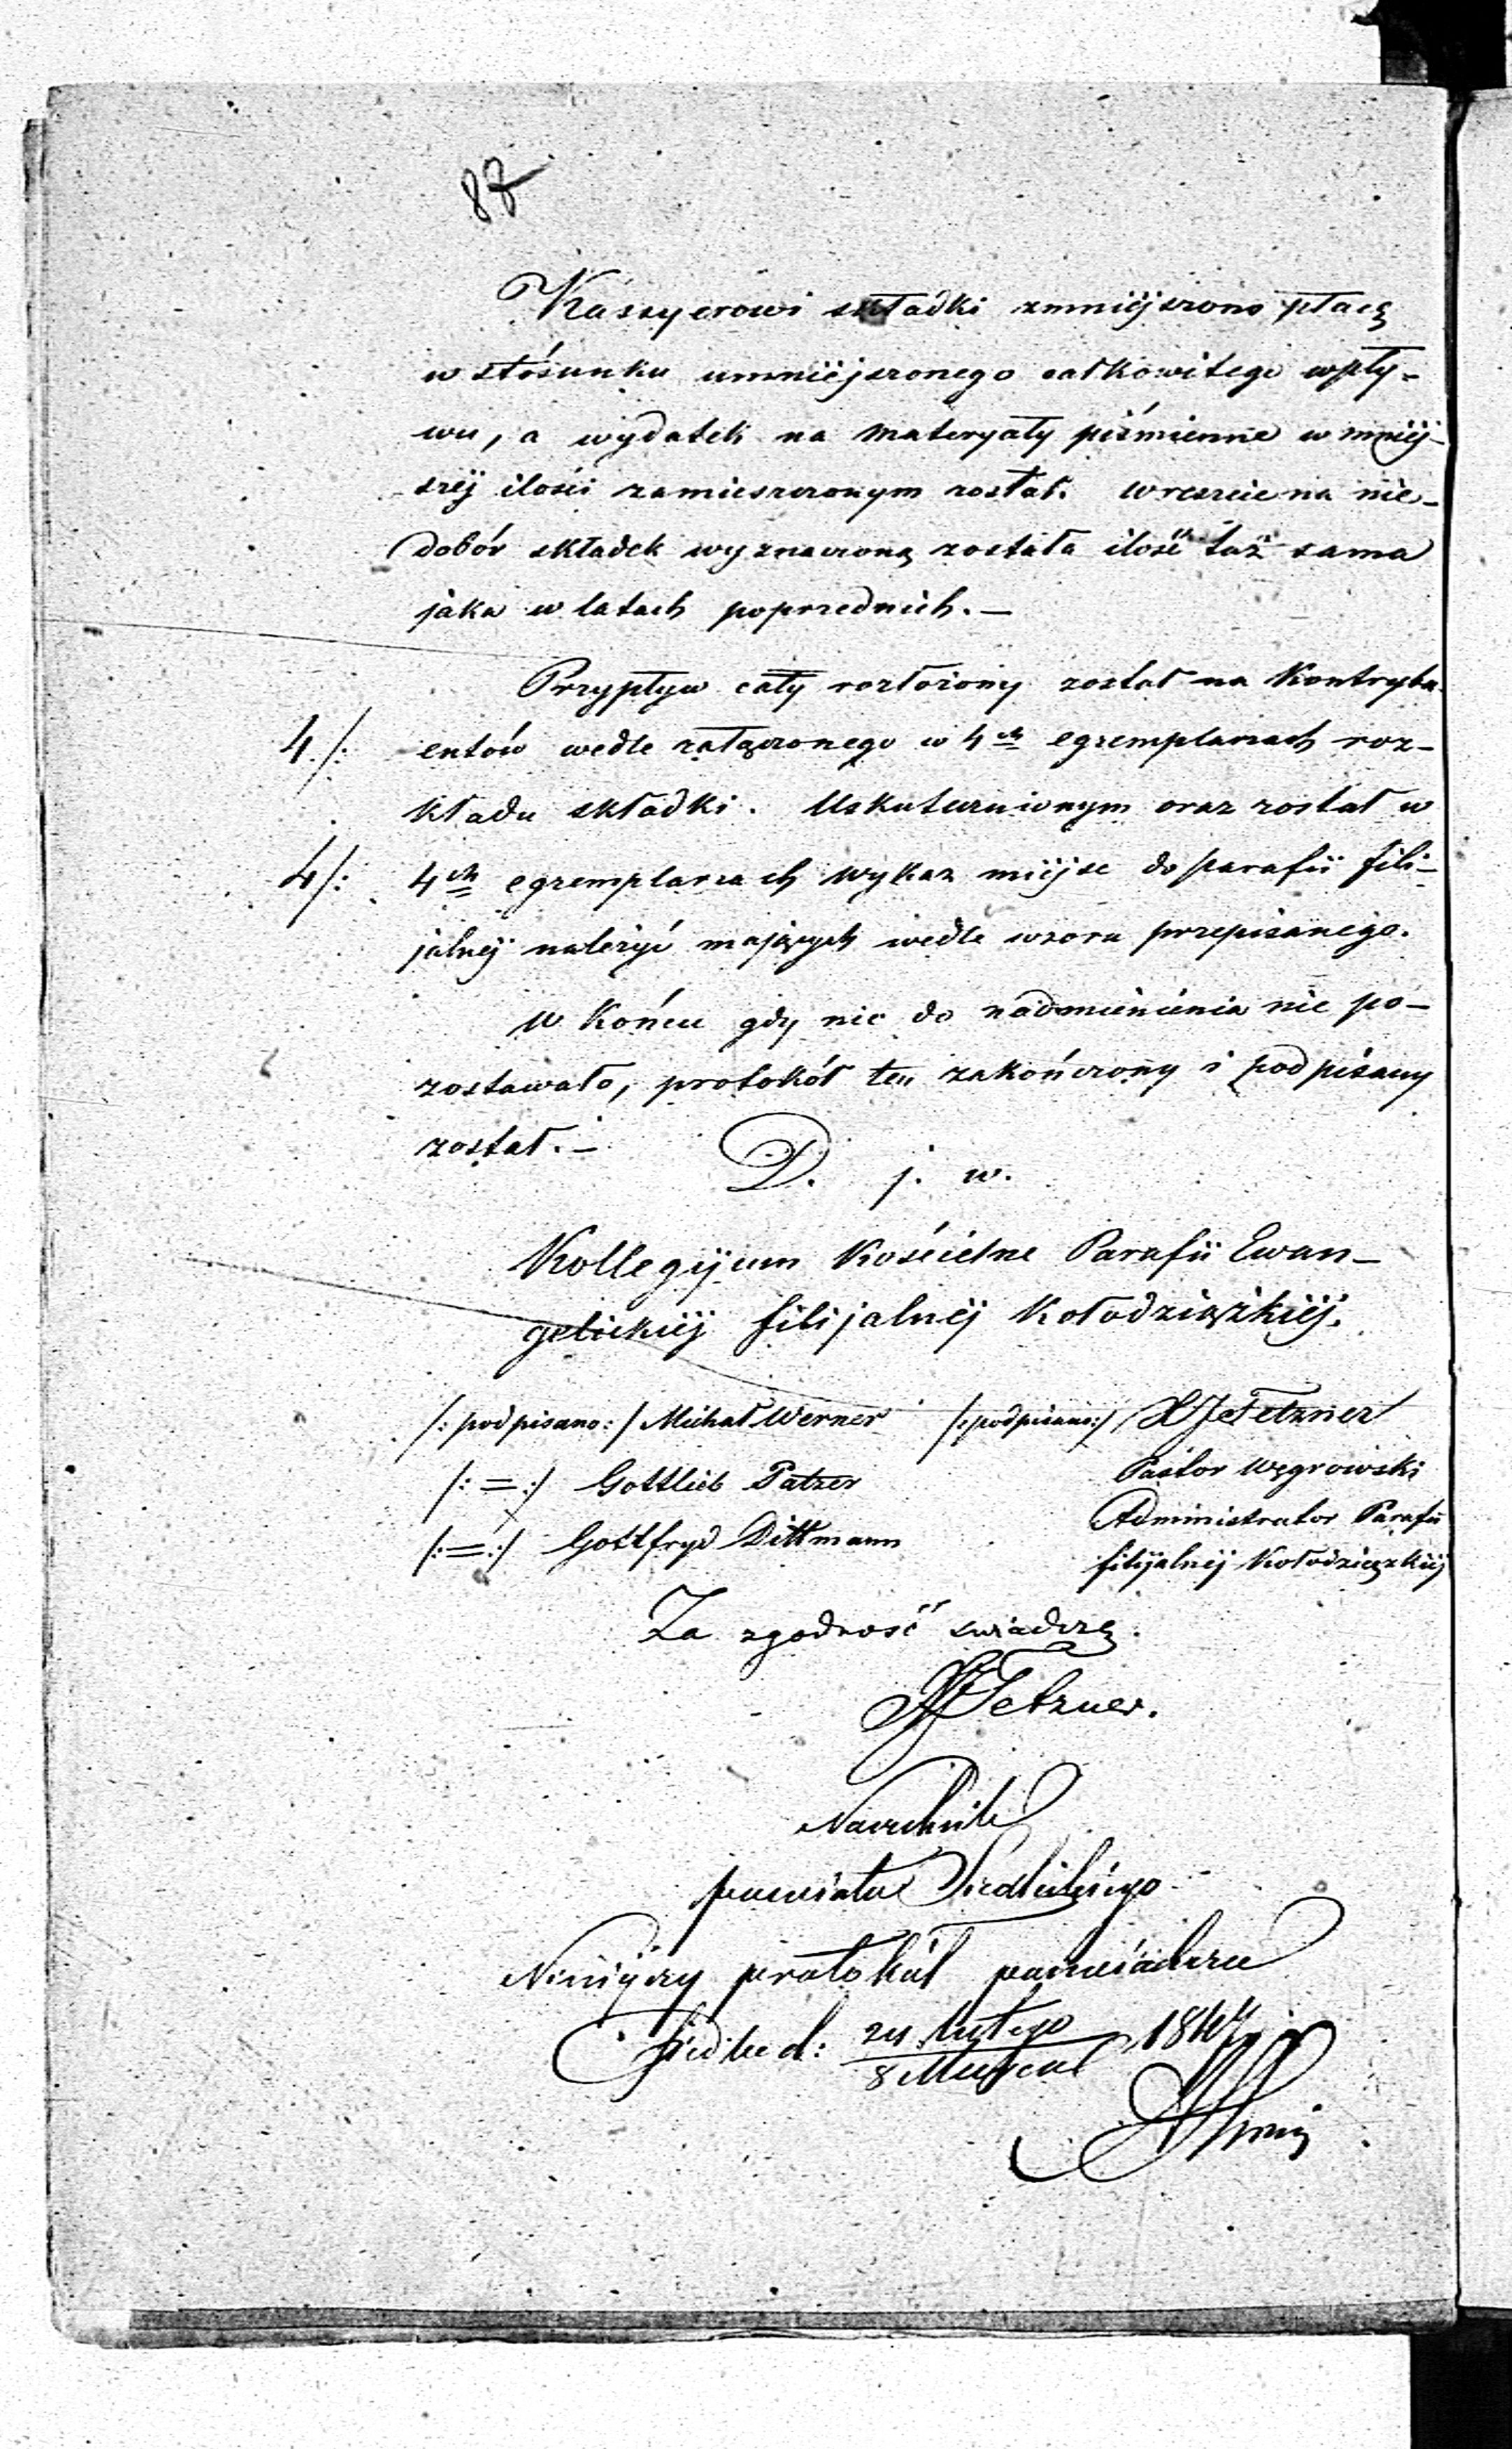 87
Kassyerowi składki zmniéjszono płacę
w stósunku umniéjszonego całkowitego wpły-
wu, a wydatek na materyały piśmienne w mniéj-
széj ilości zamieszczonym został. Wreszcie na nie-
dobór składek wyznaczoną została ilość taż sama
jaka w latach poprzednich. —
Przypływ cały rozłożony został na Kontrybu-
4./: entów wedle załączonego w 4ch egzemplarzach roz-
kładu składki. Uskutecznionym oraz został w
4/: 4ch egzemplarzach wykaz miéjsc do parafii fili-
jalnéj należyć mających wedle wzoru przepisanego.
W końcu gdy nic do nadmienienia nie po-
zostawało, protokół ten zakończony i podpisany
został. —
D. j. w.
Kollegijum Kościelne Parafii Ewan-
gelickiéj filijalnéj Kołodziążkiéj.
/: podpisano :/ Michał Werner /: podpisano :/ Tetzner
/: = :/ Gottlieb Patzer Pastor Węgrowski
/: = :/ Gottfryd Dittmann Administrator Parafii
filijalnéj Kołodziążkiéj
Za zgodność swiadczę.
Tetzner.
Naczelnik
powiatu Siedleckiego
Niniejszy protokół poświadcza
Siedlce d: 24 Lutego / 8 Marca 1847